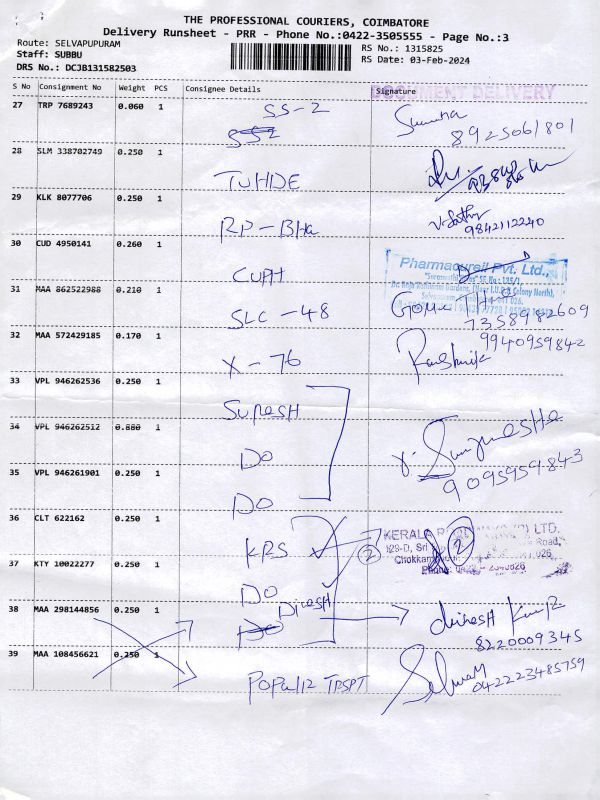 THE PROFESSIONAL COURIERS, COIMBATORE
Delivery Runsheet - PRR - Phone No.:0422-3505555 - Page No.:3
Route: SELVAPUPURAM
Staff: SUBBU
DRS No.: DCJB131582503
RS No.: 1315825
RS Date: 03-Feb-2024
S No Consignment No Weight PCS Consignee Details Signature
DOCUMENT DELIVERY
27 TRP 7689243 0.060 1
SS-2
8925061801
28 SLM 338702749 0.250 1
TUHDE
29 KLK 8077706 0.250 1
RP-Bha
9842112240
30 CUD 4950141 0.260 1
CUPH
Pharmacureil Pvt. Ltd.,
31 MAA 862522988 0.210 1
SLC-48
7358982609
32 MAA 572429185 0.170 1
X-76
9940959842
33 VPL 946262536 0.250 1
SURESH
34 VPL 946262512 0.880 1
DO
9095959843
35 VPL 946261901 0.250 1
DO
36 CLT 622162 0.250 1
KRS
2
2
KERALA LTD.
129-D, Sri Road,
37 KTY 10022277 0.250 1
DO
38 MAA 298144856 0.250 1
Dinesh
Dinesh Kumar
8220009345
39 MAA 108456621 0.250 1
Populr TRSPT
Selvam
042223485759